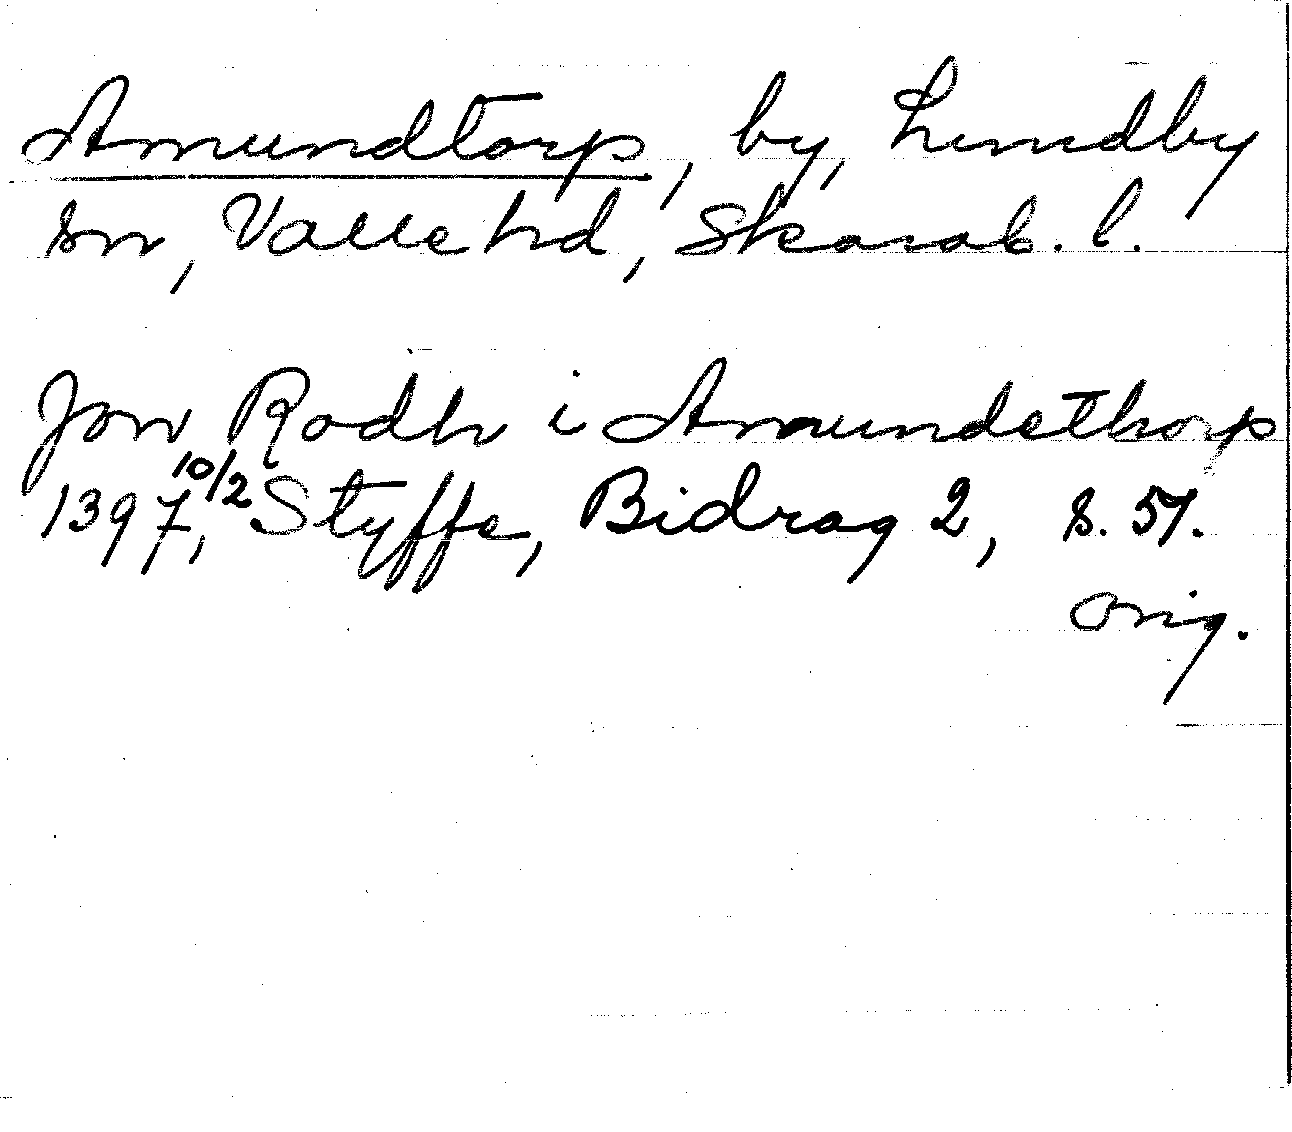 Amundtorp, by, Lundby
sn, Valle hd, Skarab. l.
Jon Rodh i Amundethorp
1397 10/2, Styffe, Bidrag 2, s. 57.
Orig.